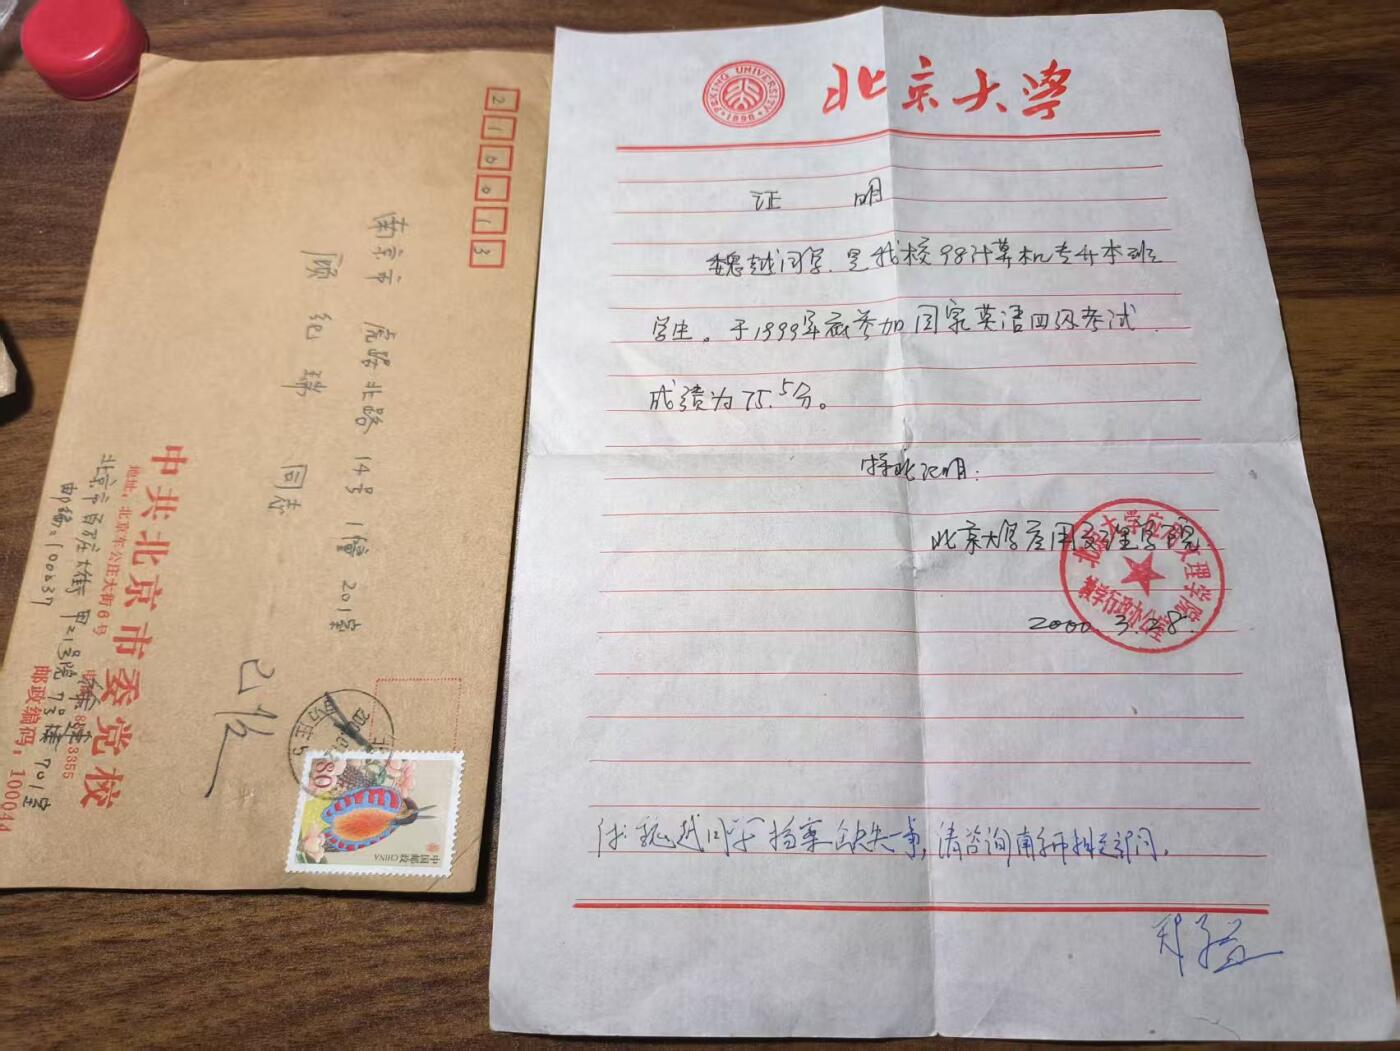 210013
南京市 虎踞北路 14号 1幢 201室
顾纪瑞 同志
中共北京市委党校
地址：北京车公庄大街6号
北京市百万庄大街甲21号院7号楼701室
邮编：100037
邮政编码：100044
80
中国邮政 CHINA
PEKING UNIVERSITY
1898
北京大学
证 明
魏越同学，是我校98计算机专升本班
学生。于1999年底参加国家英语四级考试，
成绩为75.5分。
特此证明：
北京大学应用文理学院
2000.3.28.
北京大学应用文理学院
教学行政办公室
魏越同学档案缺失一事，请咨询南师相关部门。